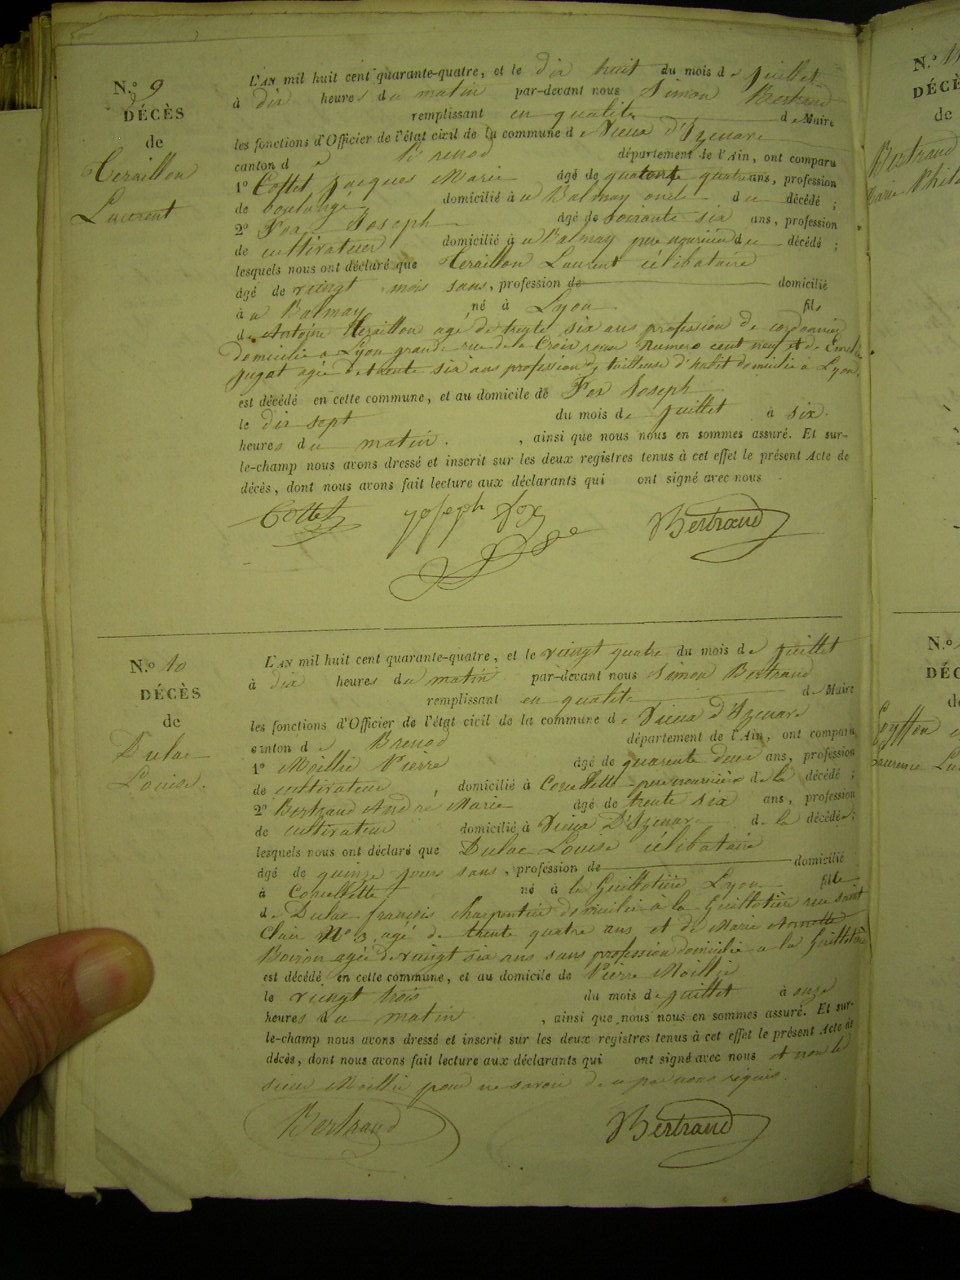 N.o 9
DÉCÈS
de
Teraillon
Laurent
L'AN mil huit cent quarante-quatre, et le dix huit du mois de juillet
à dix heures du matin par-devant nous Simon Bertrand
remplissant en qualité de Maire
les fonctions d'Officier de l'état civil de la commune de Vieux d'Izenave
canton de Brenod département de l'Ain, ont comparu
1o Cottet Jacques Marie âgé de quatre ans, profession
de boulangé domicilié à Balmay oncle du décédé ;
2o Fox Joseph âgé de soixante six ans, profession
de cultivateur domicilié à Balmay père nouricié du décédé ;
lesquels nous ont déclaré que Teraillon Laurent célibataire
âgé de vingt mois sans, profession de domicilié
à Balmay né à Lyon fils
de Antoine Téraillon agé de trente six ans profession de cordonnier
domicilié a Lyon grande rue de la Croix rousse Numéro cent neuf et de
Jugat agée de trente six ans profession tailleuse d'habit domiciliée à Lyon,
est décédé en cette commune, et au domicile de Fox Joseph
le dix sept du mois de juillet à six
heures du matin. , ainsi que nous nous en sommes assuré. Et sur-
le-champ nous avons dressé et inscrit sur les deux registres tenus à cet effet le présent Acte de
décès, dont nous avons fait lecture aux déclarants qui ont signé avec nous
Cottet Joseph Fox Bertrand
N.o 10
DÉCÈS
de
Dulac
Louise.
L'AN mil huit cent quarante-quatre, et le vingt quatre du mois de juillet
à dix heures du matin par-devant nous Simon Bertrand
remplissant en qualité de Maire
les fonctions d'Officier de l'état civil de la commune de Vieux d'Izenave
canton de Brenod département de l'Ain, ont comparu
1o Moillié Pierre âgé de quarante deux ans, profession
de cultivateur , domicilié à Corcellette père nouricié de la décédé ;
2o Bertrand André Marie âgé de trente six ans, profession
de cultivateur domicilié à Vieux D'Izenave de la décédé ;
lesquels nous ont déclaré que Dulac Louise célibataire
âgé de quinze jours sans, profession de domicilié
à Corcellette né à la Guillotière Lyon fille
de Dulac françois charpentier domicilié à la Guillotière rue saint
Clair No 3, agé de trente quatre ans et de Marie
Boiron agée de vingt six ans sans profession domiciliée a la Guillotière
est décédé en cette commune, et au domicile de Pierre Moillié
le vingt trois du mois de juillet à onze
heures du matin , ainsi que nous nous en sommes assuré. Et sur-
le-champ nous avons dressé et inscrit sur les deux registres tenus à cet effet le présent Acte de
décès, dont nous avons fait lecture aux déclarants qui ont signé avec nous et non le
sieur Moillié pour ne savoir de ce par nous réquis.
Bertrand Bertrand